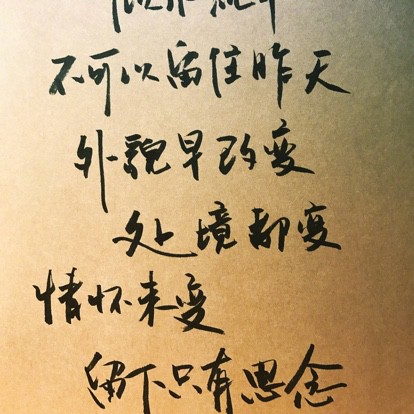 不可以留住昨天
外貌早改变
处境都变
情怀未变
留下只有思念